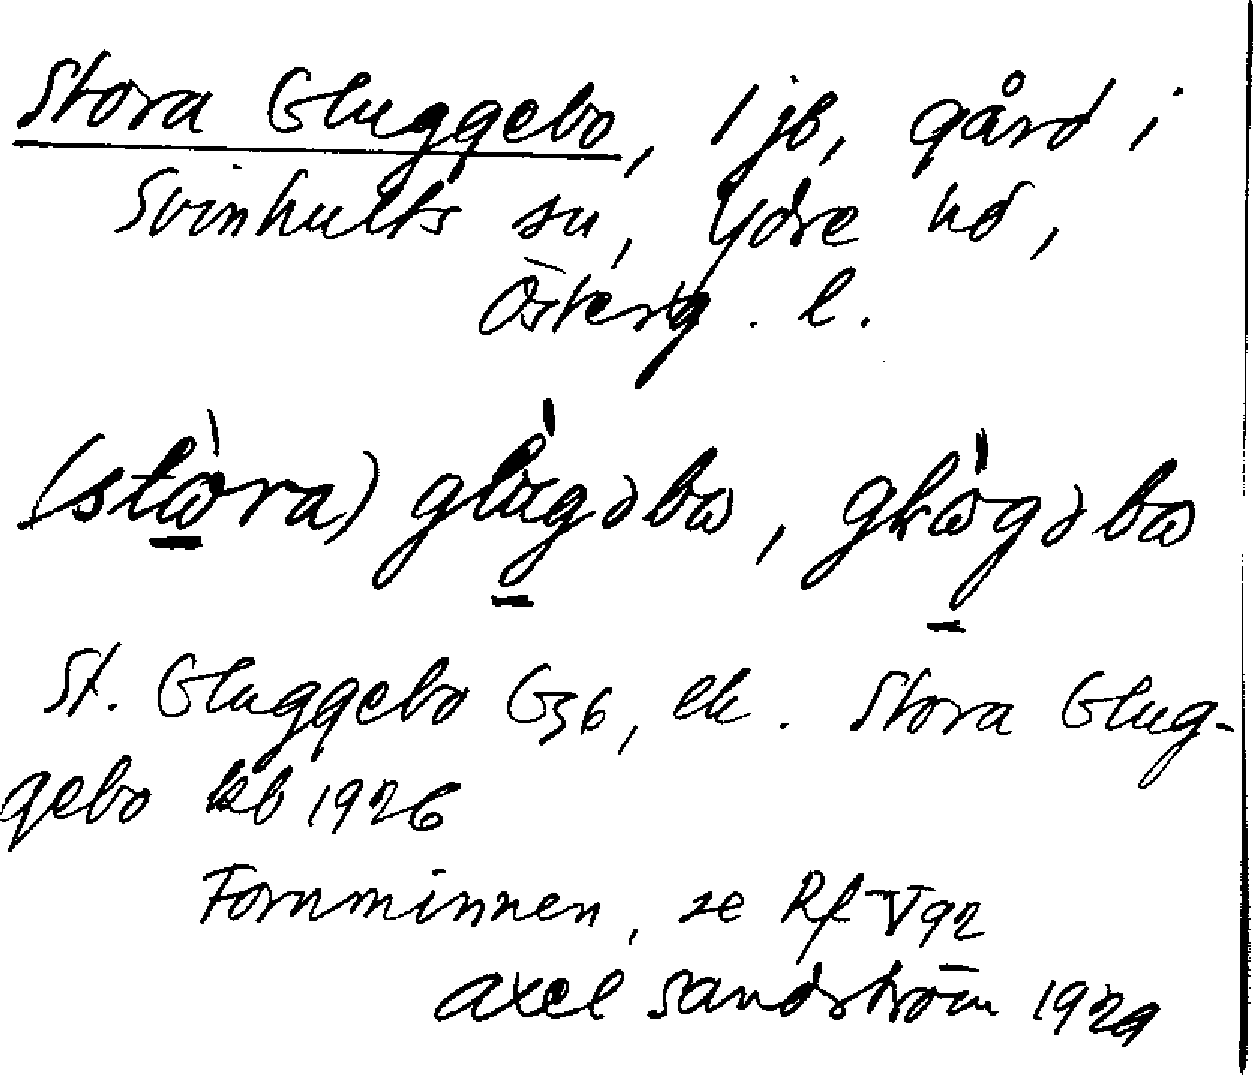 Stora Gluggebo, 1 jb, gård i
Svinhults sn, Ydre hd,
Österg. l.
(stɷ̀ra) glùgəbɷ, glɷ̀gəbɷ
St. Gluggebo G36, ek. Stora Glug-
gebo kb 1926
Fornminnen, se Rf V 92
Axel Sandström 1929